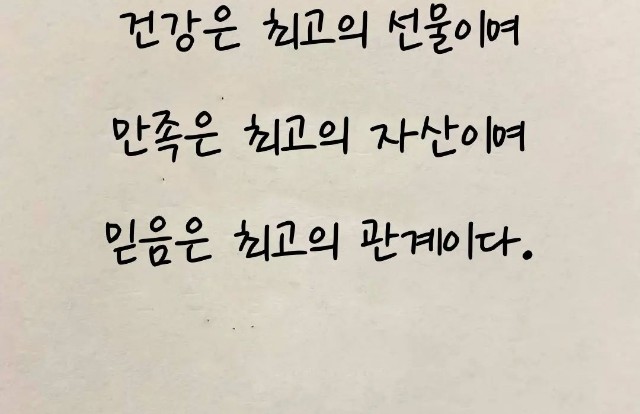 건강은 최고의 선물이여
만족은 최고의 자산이여
믿음은 최고의 관계이다.